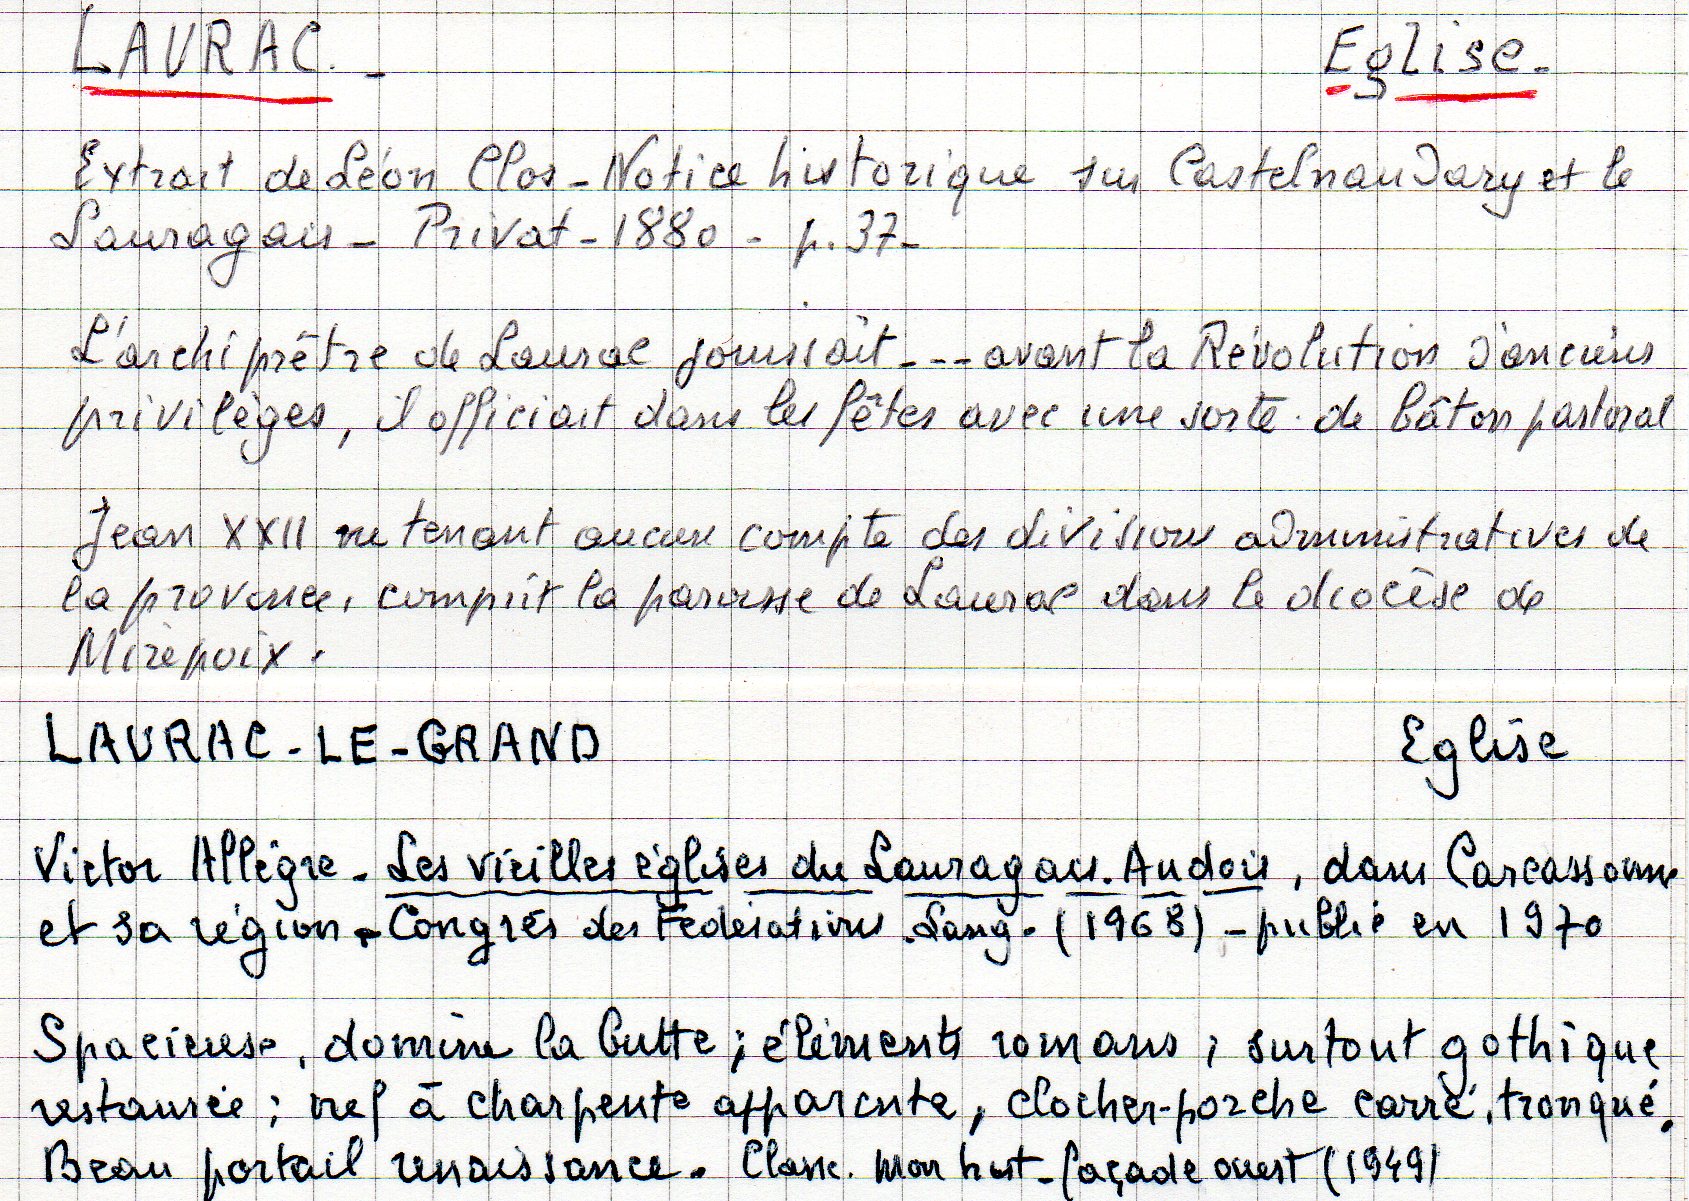 LAURAC. - Eglise -
Extrait de Léon Clos - Notice historique sur Castelnaudary et le
Lauragais - Privat - 1880 - p. 37 -
L'archiprêtre de Laurac jouissait --- avant la Révolution d'anciens
privilèges, il officiait dans les fêtes avec une sorte de bâton pastoral
Jean XXII ne tenant aucun compte des divisions administratives de
la province, comprit la paroisse de Laurac dans le diocèse de
Mirepoix.
LAURAC-LE-GRAND Eglise
Victor Allègre - Les vieilles églises du Lauragais. Audois, dans Carcassonne
et sa région - Congrès des Fédérations. Lang. (1968) - publié en 1970
Spacieuse, domine la butte ; éléments romans ; surtout gothique
restaurée ; nef à charpente apparente, clocher-porche carré, tronqué.
Beau portail renaissance. Class. Mon hist - façade ouest (1949)